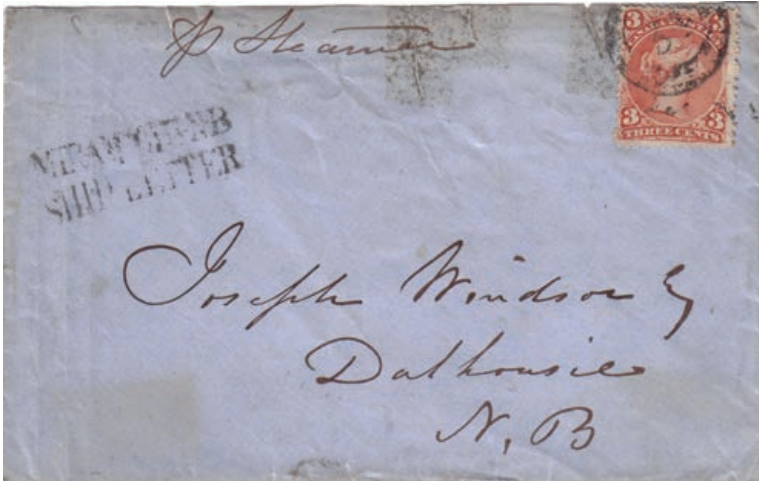 p Steamer
3 3
3 3
THREE CENTS
MIRAMICHI·NB
SHIP LETTER
Joseph Windsor Esq
Dalhousie
N. B